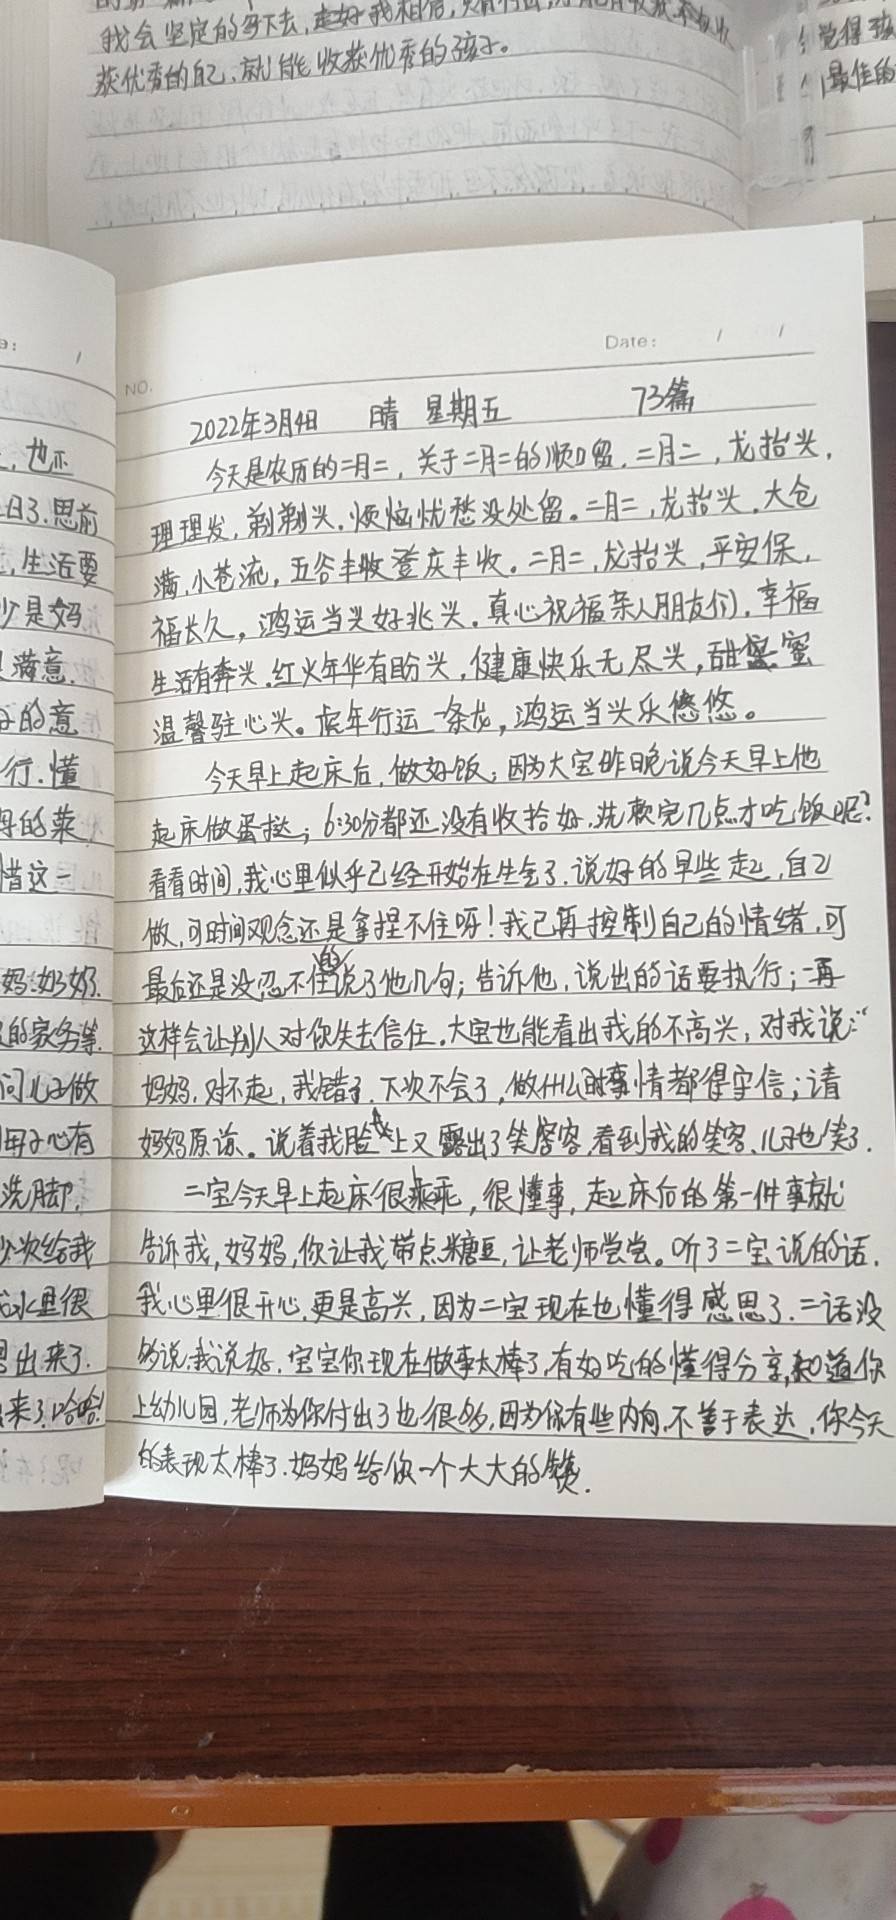 我会坚定的写下去,走好我相信,
获优秀的自己,就能收获优秀的孩子。
觉得孩
最佳的
Date: / /
NO.
2022年3月4日 晴 星期五 73篇
今天是农历的二月二,关于二月二的顺口留,二月二,龙抬头,
理理发,剃剃头,烦恼忧愁没处留。二月二,龙抬头,大仓
满,小苍流,五谷丰收登庆丰收。二月二,龙抬头,平安保,
福长久,鸿运当头好兆头。真心祝福亲人朋友们,幸福
生活有奔头,红火年华有盼头,健康快乐无尽头,甜蜜
温馨驻心头。虎年行运一条龙,鸿运当头乐悠悠。
今天早上起床后,做好饭;因为大宝昨晚说今天早上他
起床做蛋挞;6:30分都还没有收拾好,洗漱完几点才吃饭呢?
看看时间,我心里似乎已经开始在生气了,说好的早些起,自己
做,可时间观念还是拿捏不住呀!我已再控制自己的情绪,可
最后还是没忍不住的说了他几句;告诉他,说出的话要执行;一再
这样会让别人对你失去信任。大宝也能看出我的不高兴,对我说:“
妈妈,对不起,我错了,下次不会了,做什么事情都得守信;请
妈妈原谅。说着我脸上又露出了笑容,看到我的笑容,儿子也笑了.
二宝今天早上起床很乖,很懂事,起床后的第一件事就
告诉我,妈妈,你让我带点糖豆,让老师尝尝。听了二宝说的话,
我心里很开心,更是高兴,因为二宝现在也懂得感恩了.二话没
多说,我说好,宝宝你现在做事太棒了,有好吃的懂得分享,知道你
上幼儿园,老师为你付出了也很多,因为你有些内向,不善于表达,你今天
的表现太棒了.妈妈给你一个大大的赞.
日了.思前
,生活要
少是妈
满意.
的意
行.懂
得的菜
惜这一
妈.奶奶.
的家务等.
问儿子做
母子心有
洗脚,
次给我
水里很
出来了.
来了,哈哈!